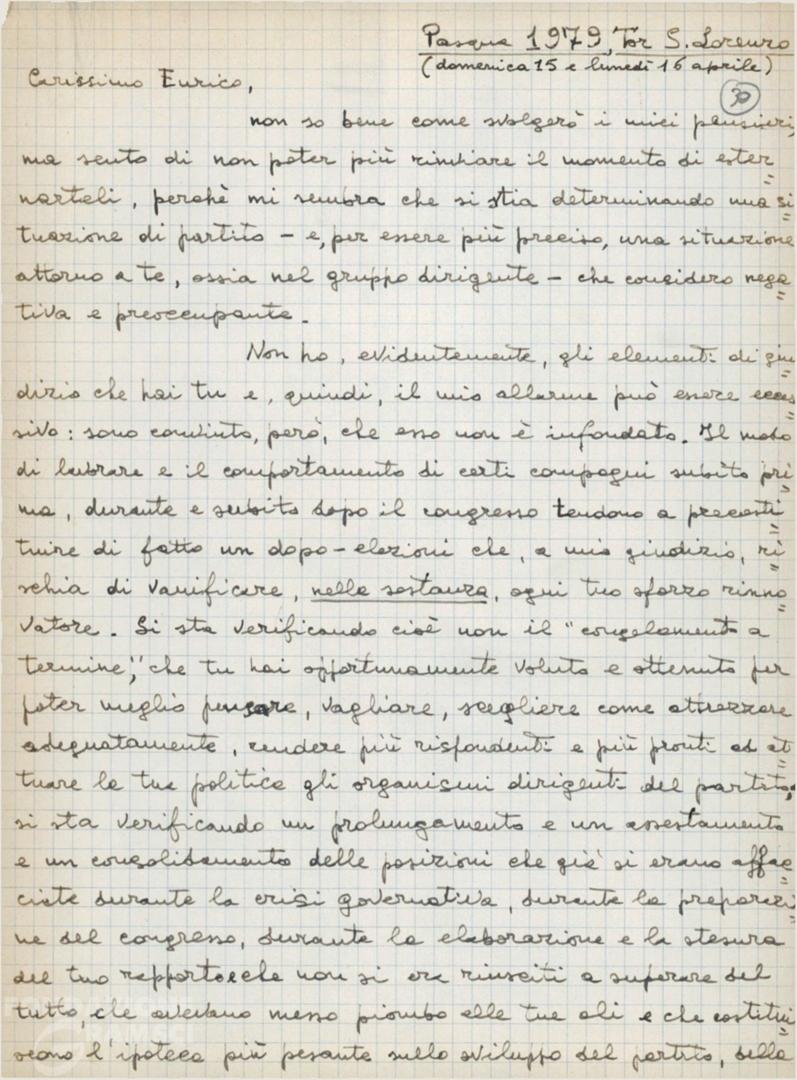 Pasqua 1979, Tor S. Lorenzo
(domenica 15 e lunedì 16 aprile)
30
Carissimo Enrico,
non so bene come svolgerò i miei pensieri,
ma sento di non poter più rinviare il momento di ester=
narteli, perchè mi sembra che si stia determinando una si=
tuazione di partito – e, per essere più preciso, una situazione
attorno a te, ossia nel gruppo dirigente – che considero nega=
tiva e preoccupante.
Non ho, evidentemente, gli elementi di giu=
dizio che hai tu e, quindi, il mio allarme può essere ecces=
sivo: sono convinto, però, che esso non è infondato. Il modo
di lavorare e il comportamento di certi compagni subito pri=
ma, durante e subito dopo il congresso tendono a precosti=
tuire di fatto un dopo-elezioni che, a mio giudizio, ri=
schia di vanificare, nella sostanza, ogni tuo sforzo rinno=
vatore. Si sta verificando cioè non il "congelamento a
termine", che tu hai opportunamente voluto e ottenuto per
poter meglio pensare, vagliare, scegliere come attrezzare
adeguatamente, rendere più rispondenti e più pronti ad at=
tuare la tua politica gli organismi dirigenti del partito,
si sta verificando un prolungamento e un assestamento
e un consolidamento delle posizioni che già si erano affac=
ciate durante la crisi governativa, durante la preparazio=
ne del congresso, durante la elaborazione e la stesura
del tuo rapporto e che non si era riusciti a superare del
tutto, che avevano messo piombo alle tue ali e che costitui=
scono l'ipoteca più pesante sullo sviluppo del partito, della